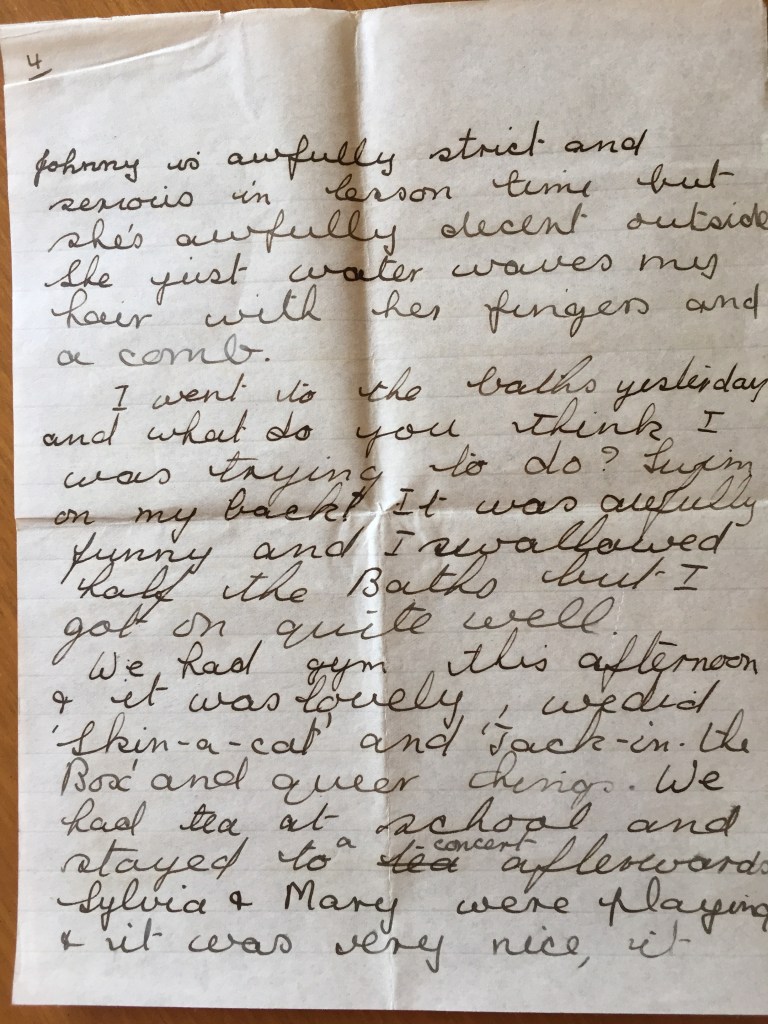 4
Johnny is awfully strict and
serious in lesson time but
she's awfully decent outside
She just water waves my
hair with her fingers and
a comb.
I went to the baths yesterday
and what do you think I
was trying to do? Swim
on my back! It was awfully
funny and I swallowed
half the Baths but I
got on quite well.
We had gym this afternoon
& it was lovely, we did
'Skin-a-cat' and 'Jack-in-the
Box' and queer things. We
had tea at school and
stayed to a tea concert afterwards
Sylvia & Mary were playing
& it was very nice, it